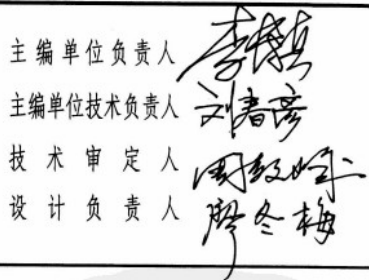 主编单位负责人 李
主编单位技术负责人 刘春彦
技术审定人 周
设计负责人 廖冬梅